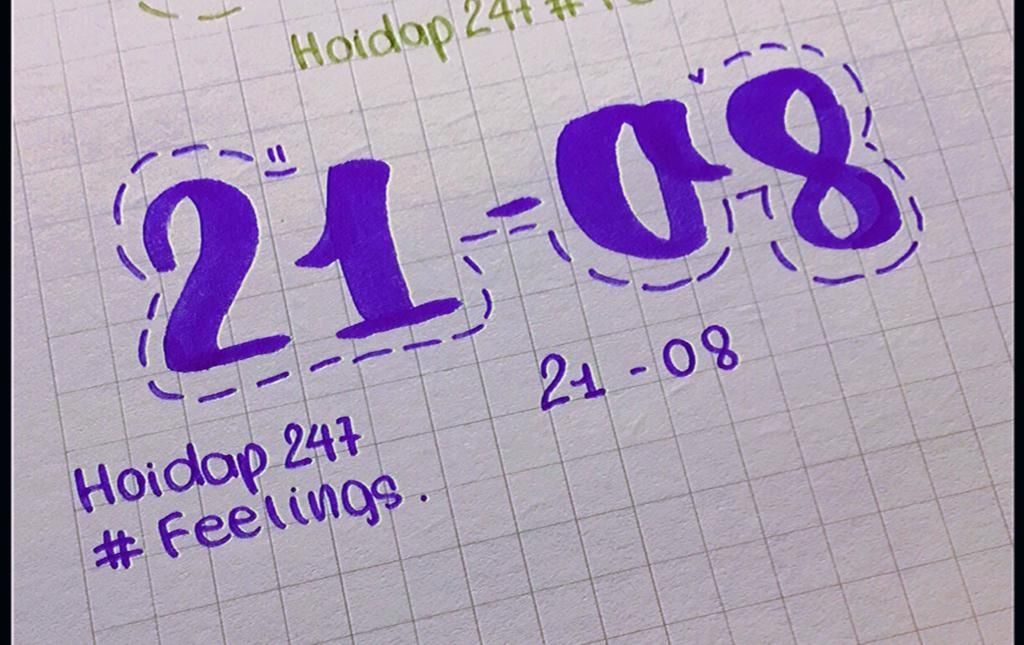 Hoidap 247 #
21-08
21-08
Hoidap 247
# Feelings.